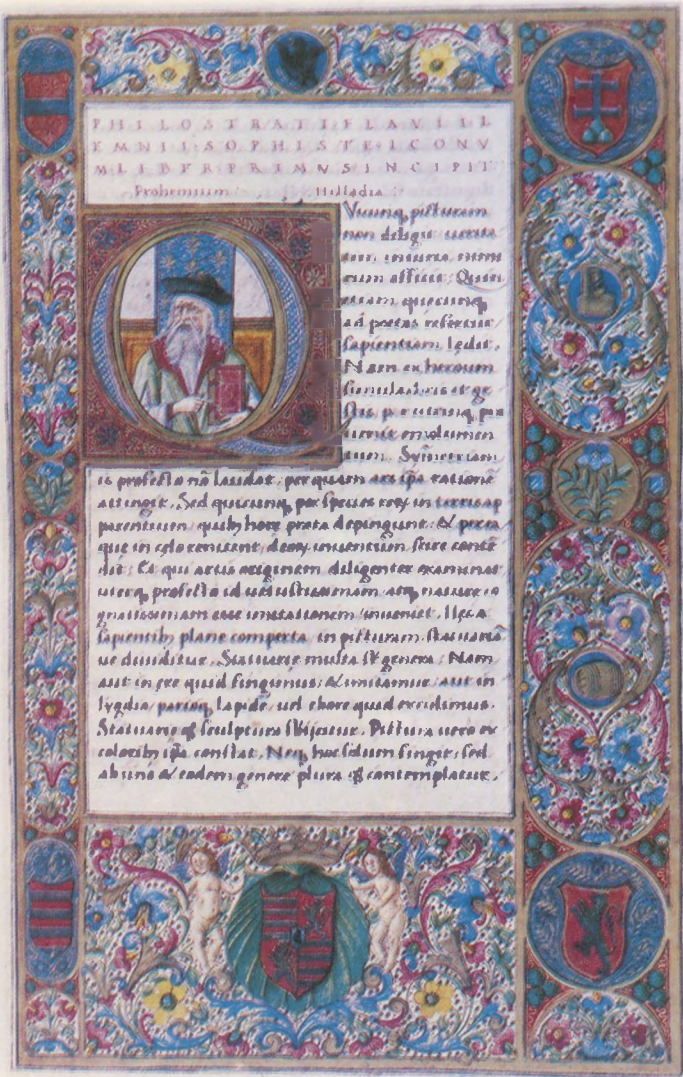 PHILOSTRATI FLAVII L
EMNII SOPHISTE ICONV
M LIBER PRIMVS INCIPIT
Prohemium Helladia
Vicunq picturam
non deligit uerita
tem iniuria
rum afficit: Quin
etiam quecunq
ad poetas refertur
sapientiam ledit.
Nam ex heroum
simulachris et ge
stis, utrinq per
uenit emolumen
tum. Symetriam
is profecto nõ laudat, per quam ars ipã rationẽ
attingit. Sed quicunq per species rerũ in terris ap
parentium, quib hore prata depingunt: & per ea
que in celo renitent, deorũ inuentum scire conte
dit: Et qui artis originem diligenter examinat
uterq profecto id uetustissimam, atq nature co
gnatissimam esse imitationem inueniet. Hec a
sapientib plane comperta in picturam, statuariã
ue diuiditur. Statuarie multa st genera: Nam
aut in ere quid fingimus: & imitamur, aut in
lygdio parioq lapide, uel ebore quid excidimus.
Statuarie sculptura sbijcitur. Pictura uero ex
colorib ipã constat. Neq hoc solum fingit, sed
ab uno & eodem genere plura contemplatur.